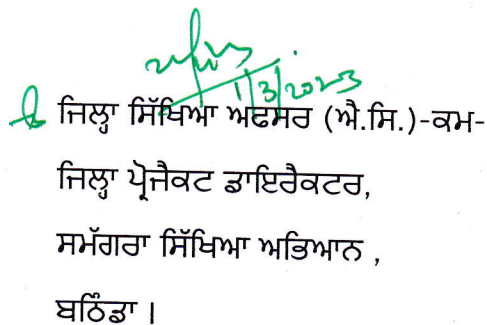 1/3/2023
ਜਿਲ੍ਹਾ ਸਿੱਖਿਆ ਅਫਸਰ (ਐ.ਸਿ.)-ਕਮ-
ਜਿਲ੍ਹਾ ਪ੍ਰੋਜੈਕਟ ਡਾਇਰੈਕਟਰ,
ਸਮੱਗਰਾ ਸਿੱਖਿਆ ਅਭਿਆਨ ,
ਬਠਿੰਡਾ ।